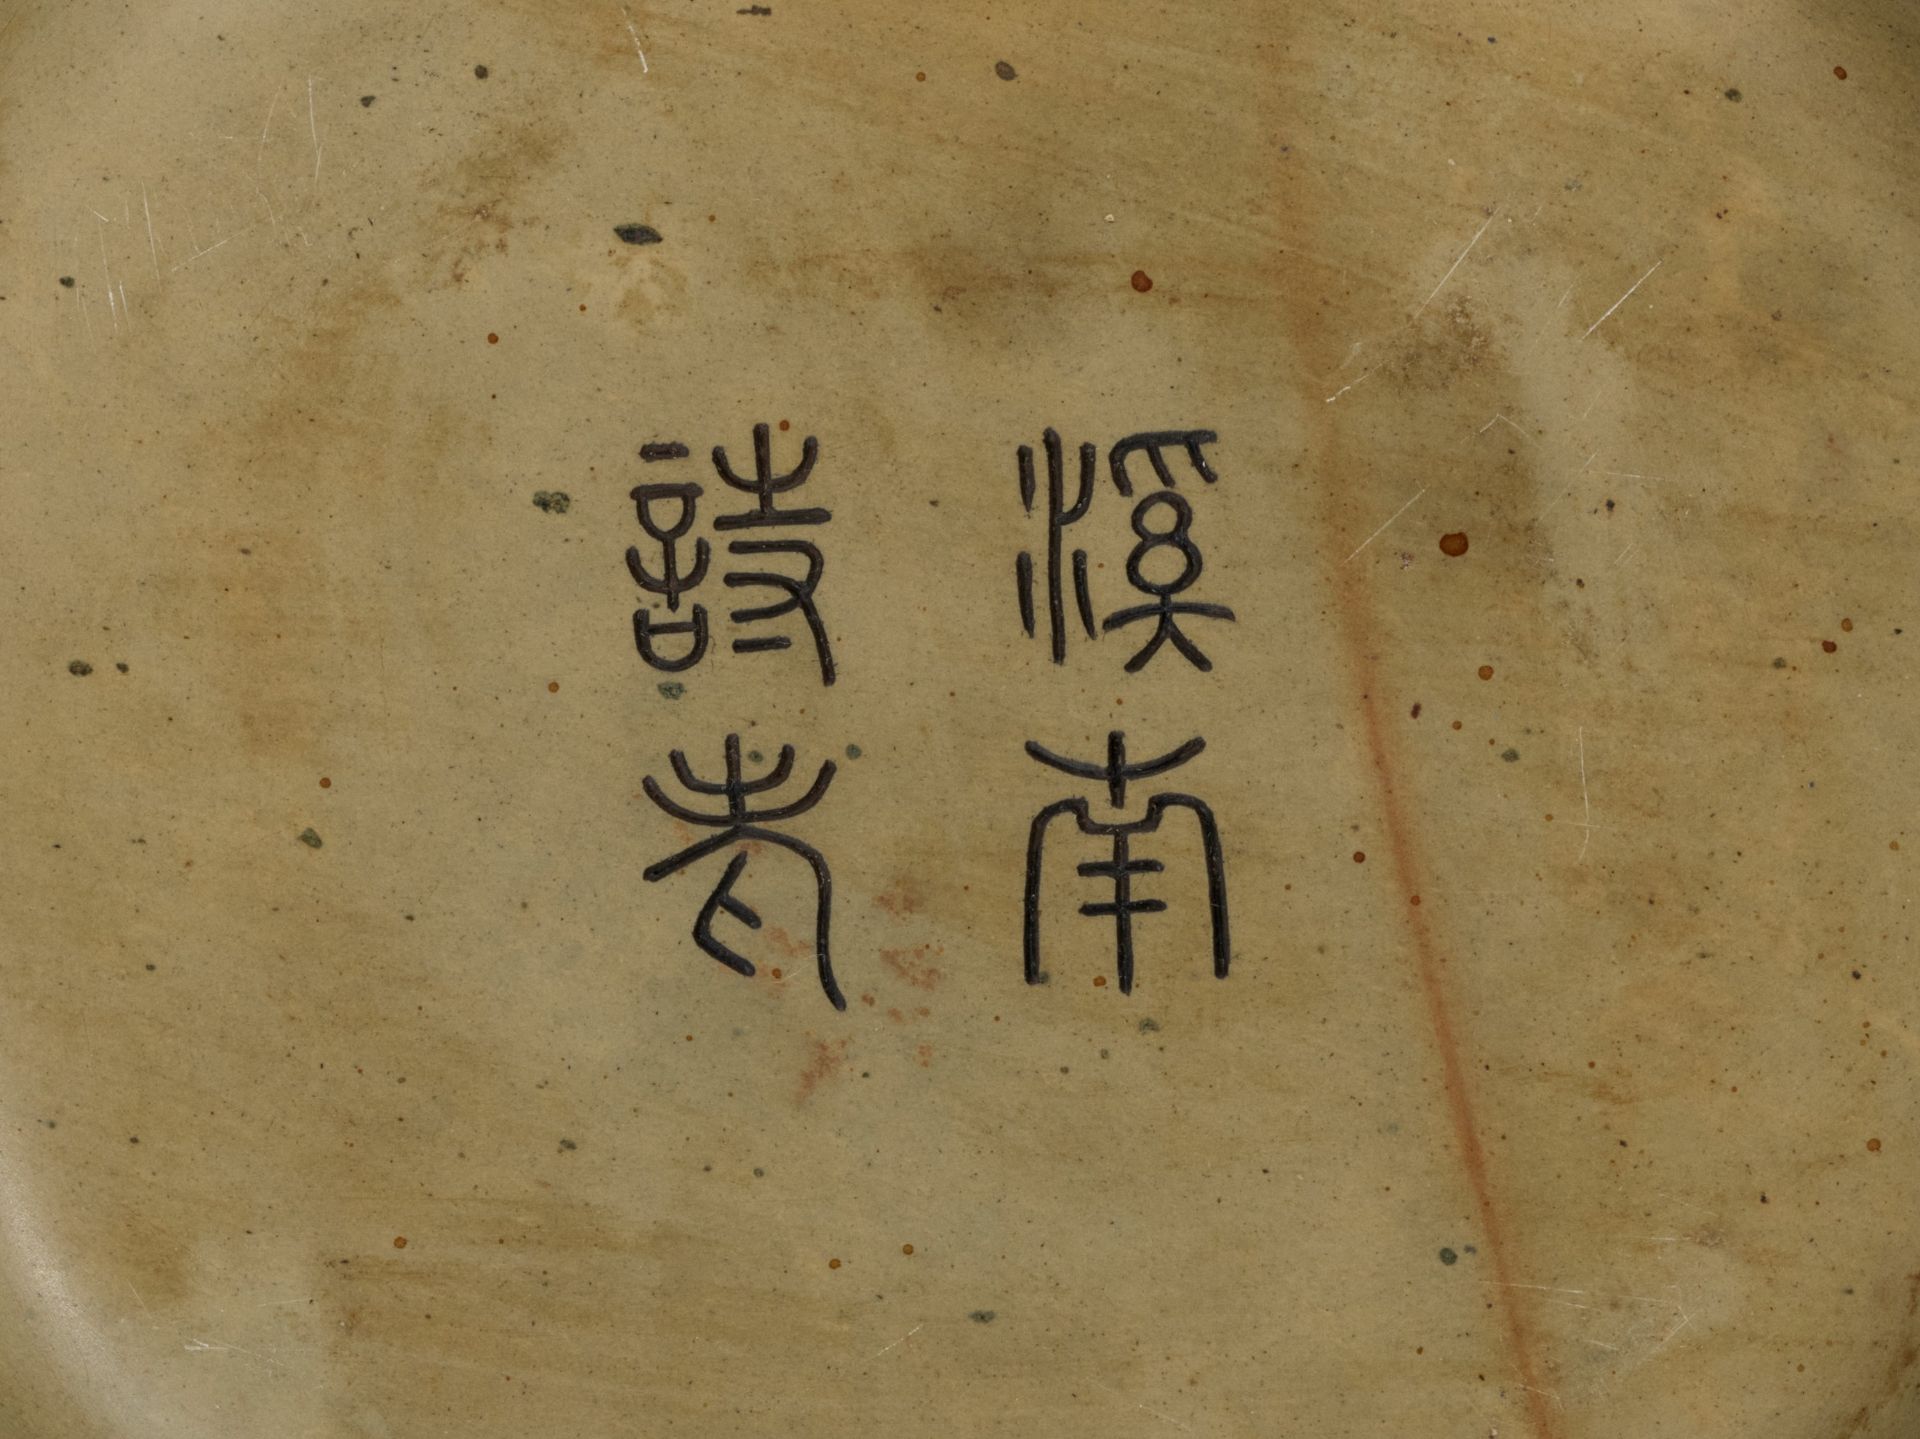 溪南
詩老